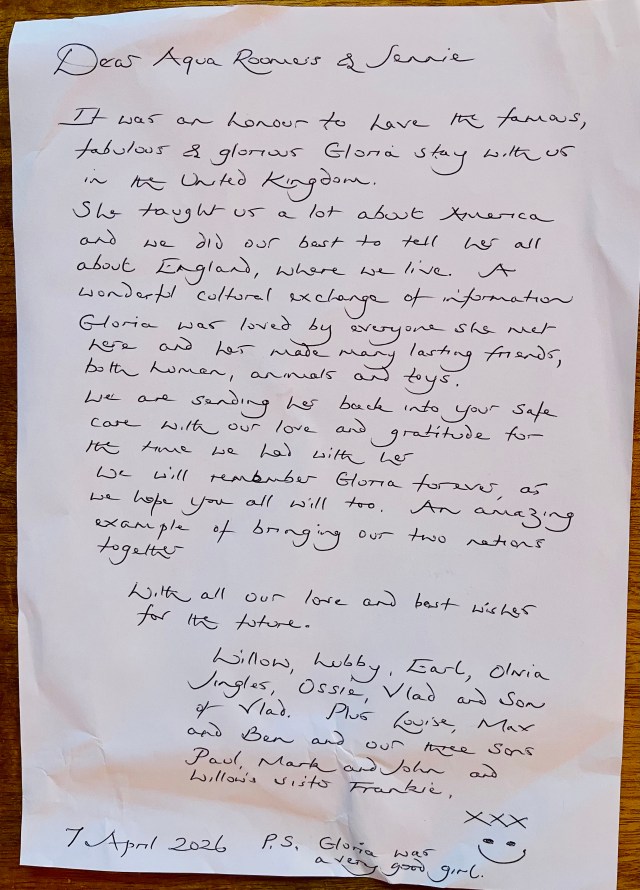 Dear Aqua Roomers & Jennie
It was an honour to have the famous,
fabulous & glorious Gloria stay with us
in the United Kingdom.
She taught us a lot about America
and we did our best to tell her all
about England, where we live. A
wonderful cultural exchange of information
Gloria was loved by everyone she met
here and her made many lasting friends,
both human, animals and toys.
We are sending her back into your safe
care with our love and gratitude for
the time we had with her
We will remember Gloria forever, as
we hope you all will too. An amazing
example of bringing our two nations
together
With all our love and best wishes
for the future.
Willow, Lubby, Earl, Olivia
Jingles, Ossie, Vlad and Son
of Vlad. Plus Louise, Max
and Ben and our three sons
Paul, Mark and John and
Willow's sister Frankie.
XXX
7 April 2026 P.S. Gloria was
a very good girl.